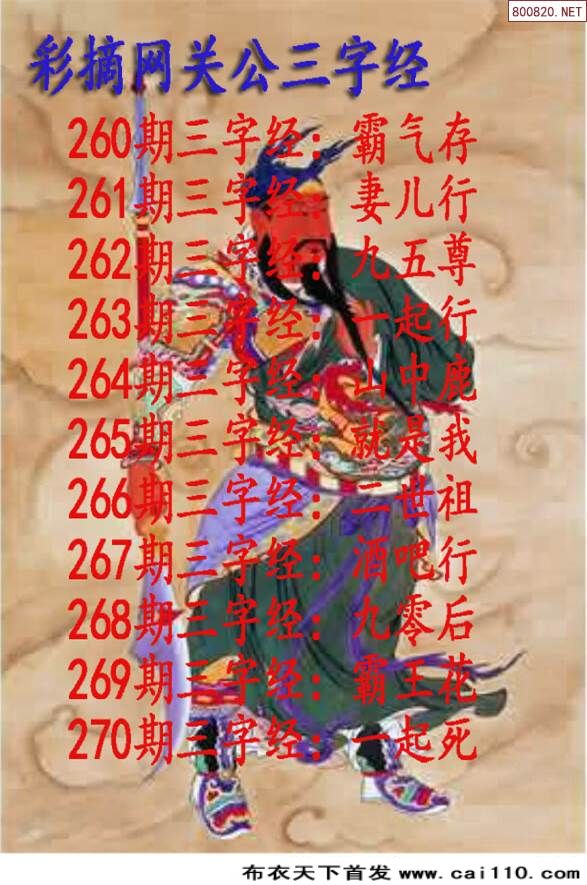 800820.NET
彩摘网关公三字经
260期三字经：霸气存
261期三字经：妻儿行
262期三字经：九五尊
263期三字经：一起行
264期三字经：山中鹿
265期三字经：就是我
266期三字经：二世祖
267期三字经：酒吧行
268期三字经：九零后
269期三字经：霸王花
270期三字经：一起死
布衣天下首发 www.cai110.com